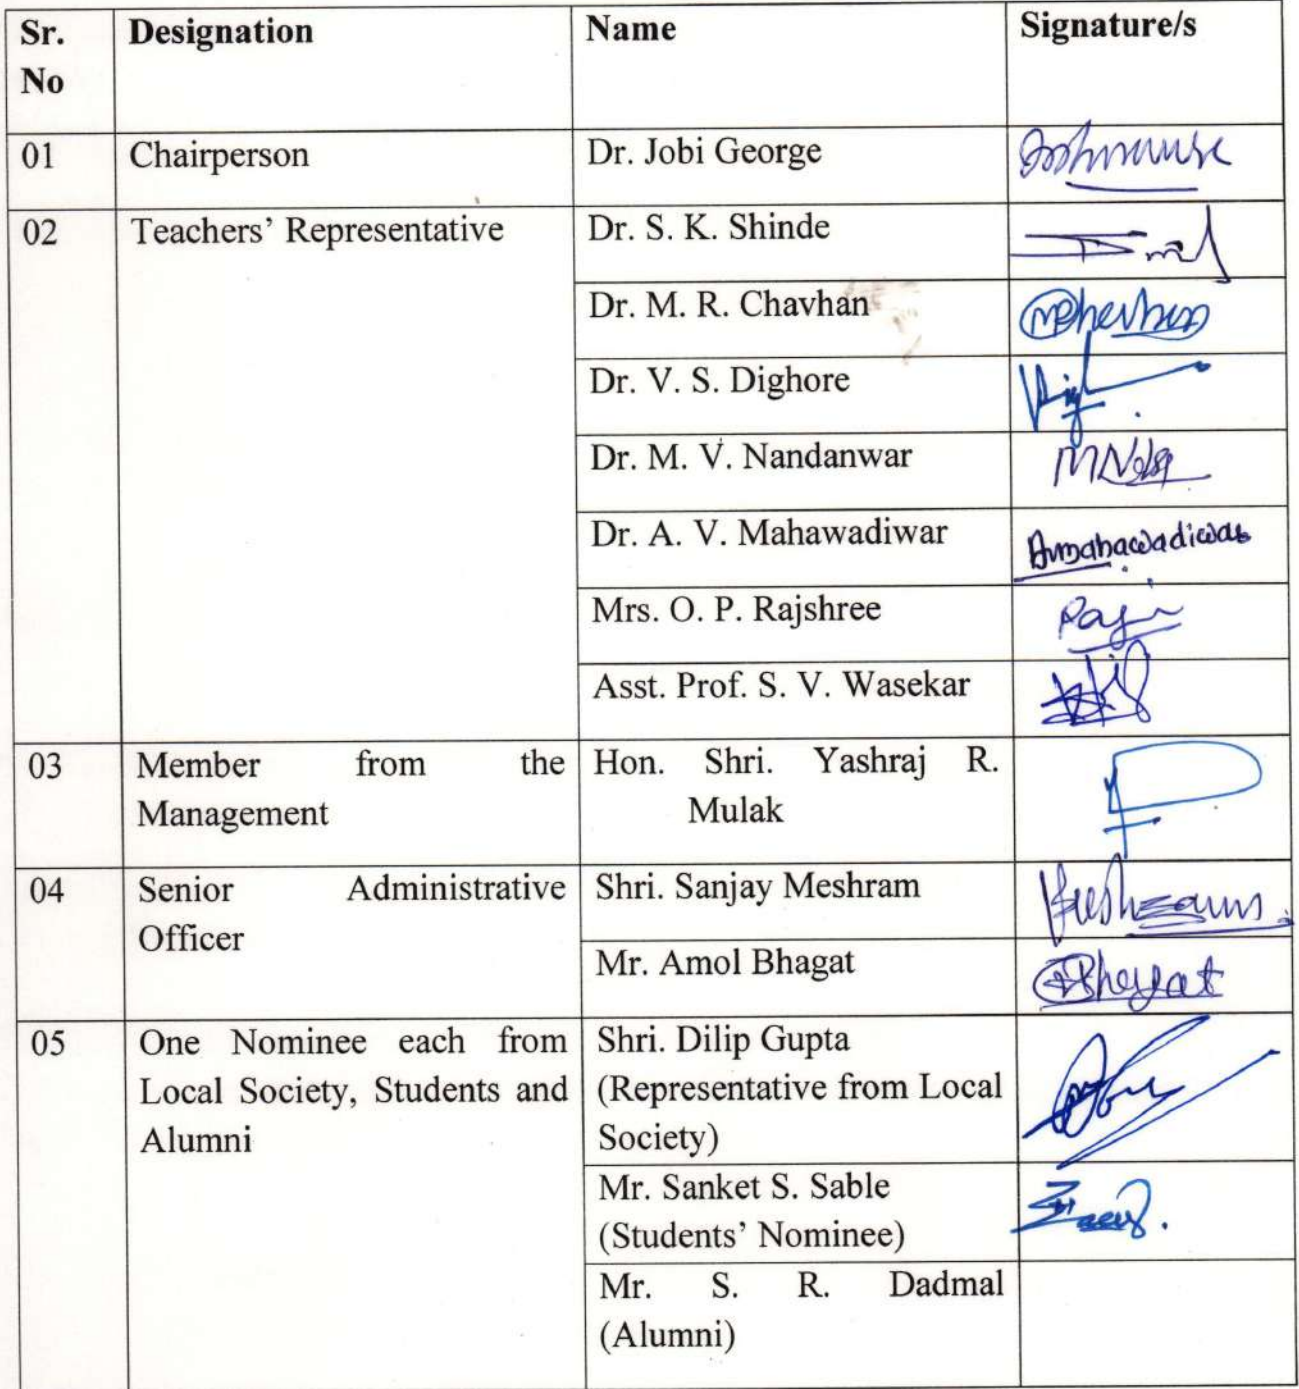 Sr. No
Designation
Name
Signature/s
01
Chairperson
Dr. Jobi George
02
Teachers’ Representative
Dr. S. K. Shinde
Dr. M. R. Chavhan
Dr. V. S. Dighore
Dr. M. V. Nandanwar
Dr. A. V. Mahawadiwar
Avmahawadiwar
Mrs. O. P. Rajshree
Asst. Prof. S. V. Wasekar
03
Member from the
Management
Hon. Shri. Yashraj R.
Mulak
04
Senior Administrative
Officer
Shri. Sanjay Meshram
Mr. Amol Bhagat
05
One Nominee each from
Local Society, Students and
Alumni
Shri. Dilip Gupta
(Representative from Local
Society)
Mr. Sanket S. Sable
(Students’ Nominee)
Mr. S. R. Dadmal
(Alumni)